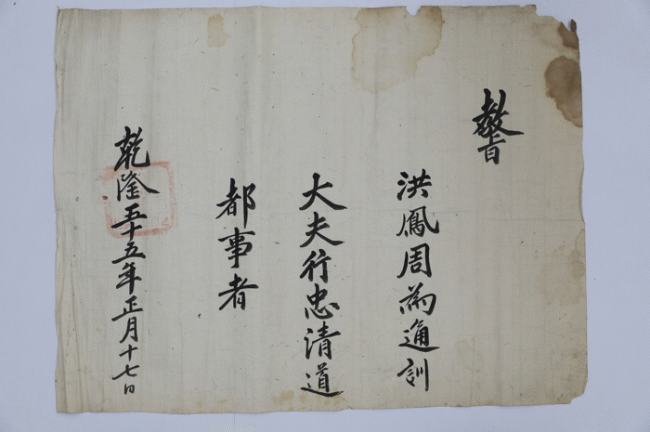 敎旨
洪鳳周爲通訓
大夫行忠淸道
都事者
乾隆五十五年正月十七日